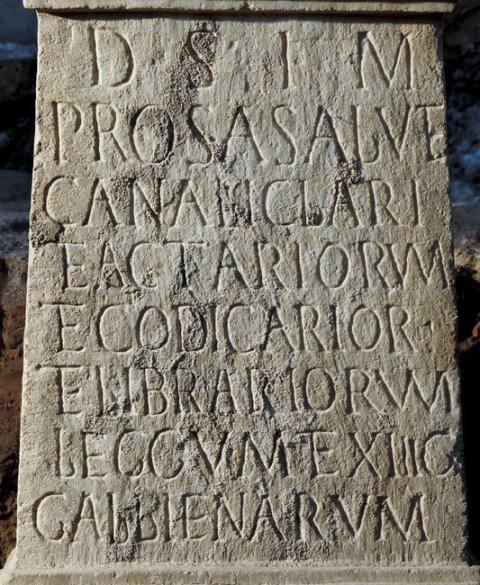 D S I M
PRO SA SALVTE
CANALICLARI
ET ACTARIORVM
ET CODICARIOR
ET LIBRARIORVM
LEGG V M ET XIII G
GALLIENARVM